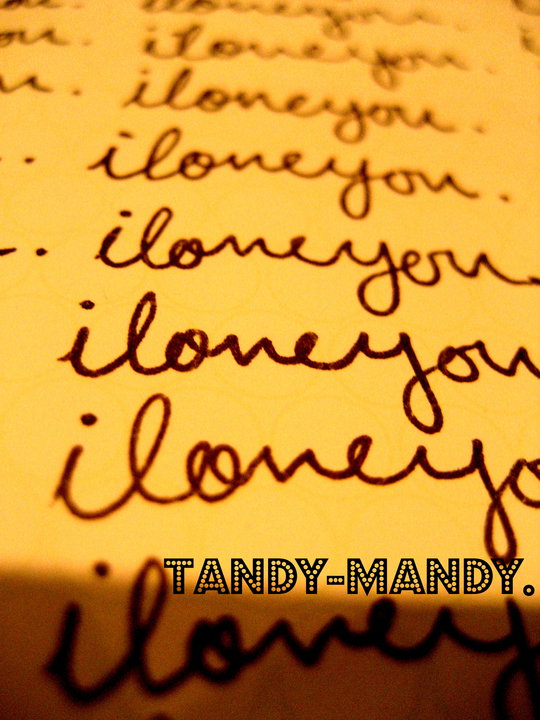 iloveyou.
ou. iloveyou.
u. iloveyou.
. iloveyou.
. iloveyou
iloveyou
iloveyo
TANDY-MANDY.
ilovey